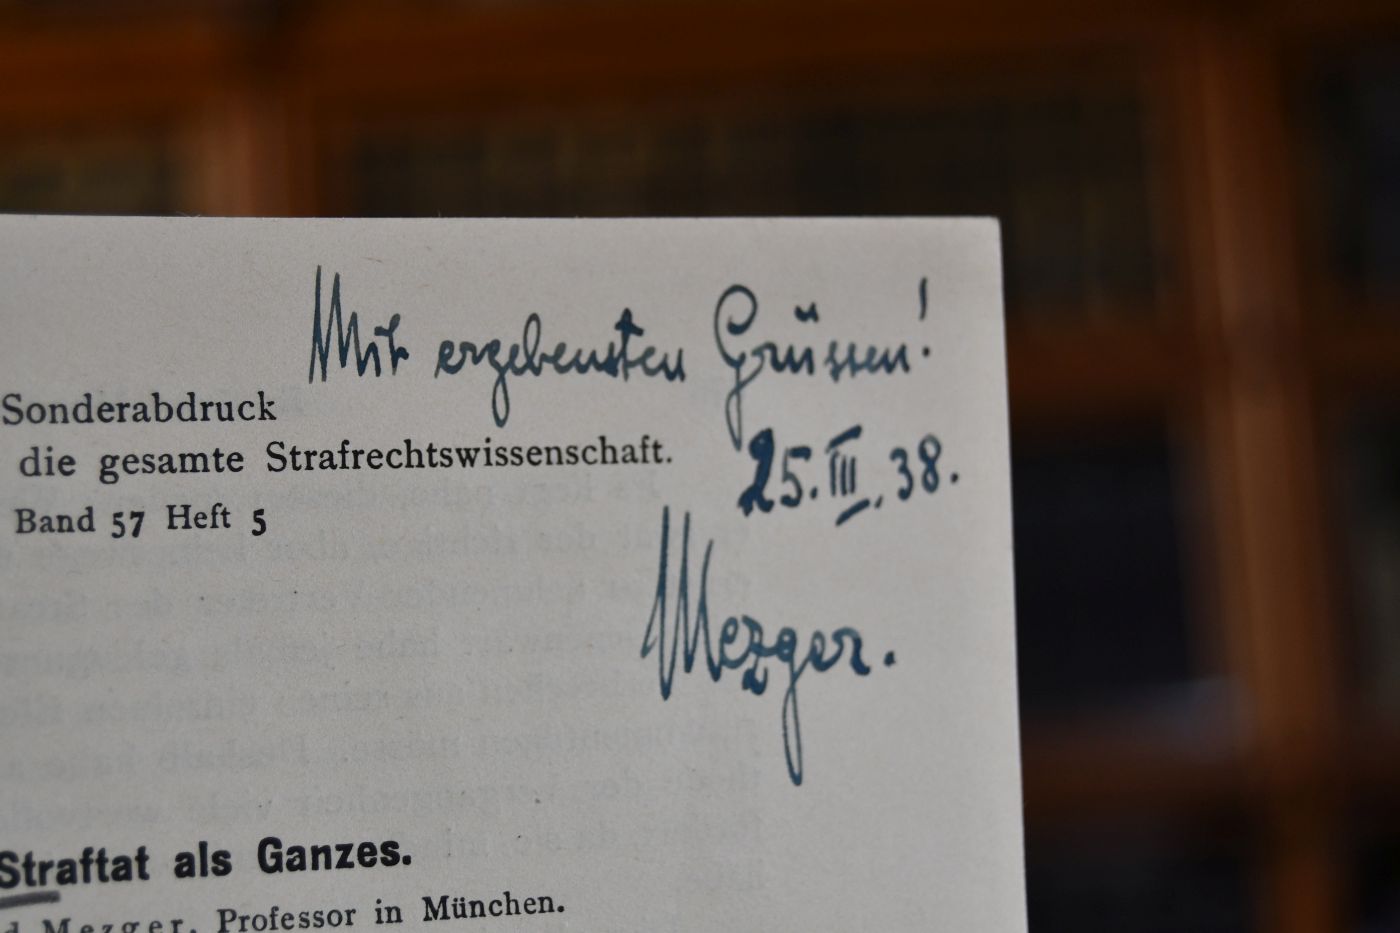 Mit ergebensten Grüssen!
Sonderabdruck
die gesamte Strafrechtswissenschaft.
25. III. 38.
Band 57 Heft 5
Mezger.
Straftat als Ganzes.
d Mezger, Professor in München.